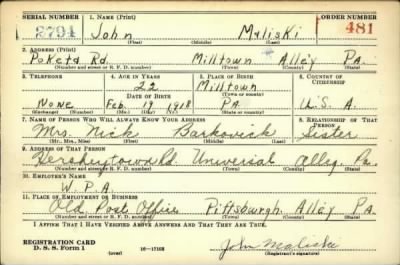 SERIAL NUMBER 1. NAME (Print) ORDER NUMBER
2794 John Maliski 481
(First) (Middle) (Last)
2. ADDRESS (Print)
Poketa Rd. Milltown Alleg Pa.
(Number and street or R. F. D. number) (Town) (County) (State)
3. TELEPHONE 4. AGE IN YEARS 5. PLACE OF BIRTH 6. COUNTRY OF CITIZENSHIP
22 Milltown
DATE OF BIRTH (Town or county)
None Feb. 19 1918 Pa. U.S.A.
(Exchange) (Number) (Mo.) (Day) (Yr.) (State or country)
7. NAME OF PERSON WHO WILL ALWAYS KNOW YOUR ADDRESS 8. RELATIONSHIP OF THAT PERSON
Mrs. Nick Barkovick Sister
(Mr., Mrs., Miss) (First) (Middle) (Last)
9. ADDRESS OF THAT PERSON
Hersheytown Rd Universal Alleg. Pa.
(Number and street or R. F. D. number) (Town) (County) (State)
10. EMPLOYER'S NAME
W.P.A.
11. PLACE OF EMPLOYMENT OR BUSINESS
Old Post Office Pittsburgh Alleg Pa.
(Number and street or R. F. D. number) (Town) (County) (State)
I AFFIRM THAT I HAVE VERIFIED ABOVE ANSWERS AND THAT THEY ARE TRUE.
REGISTRATION CARD
D. S. S. Form 1 (over) John Maliski
(Registrant's signature)